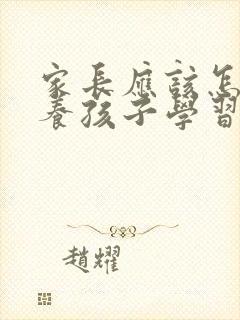 家長應該怎
養孩子學習
趙耀